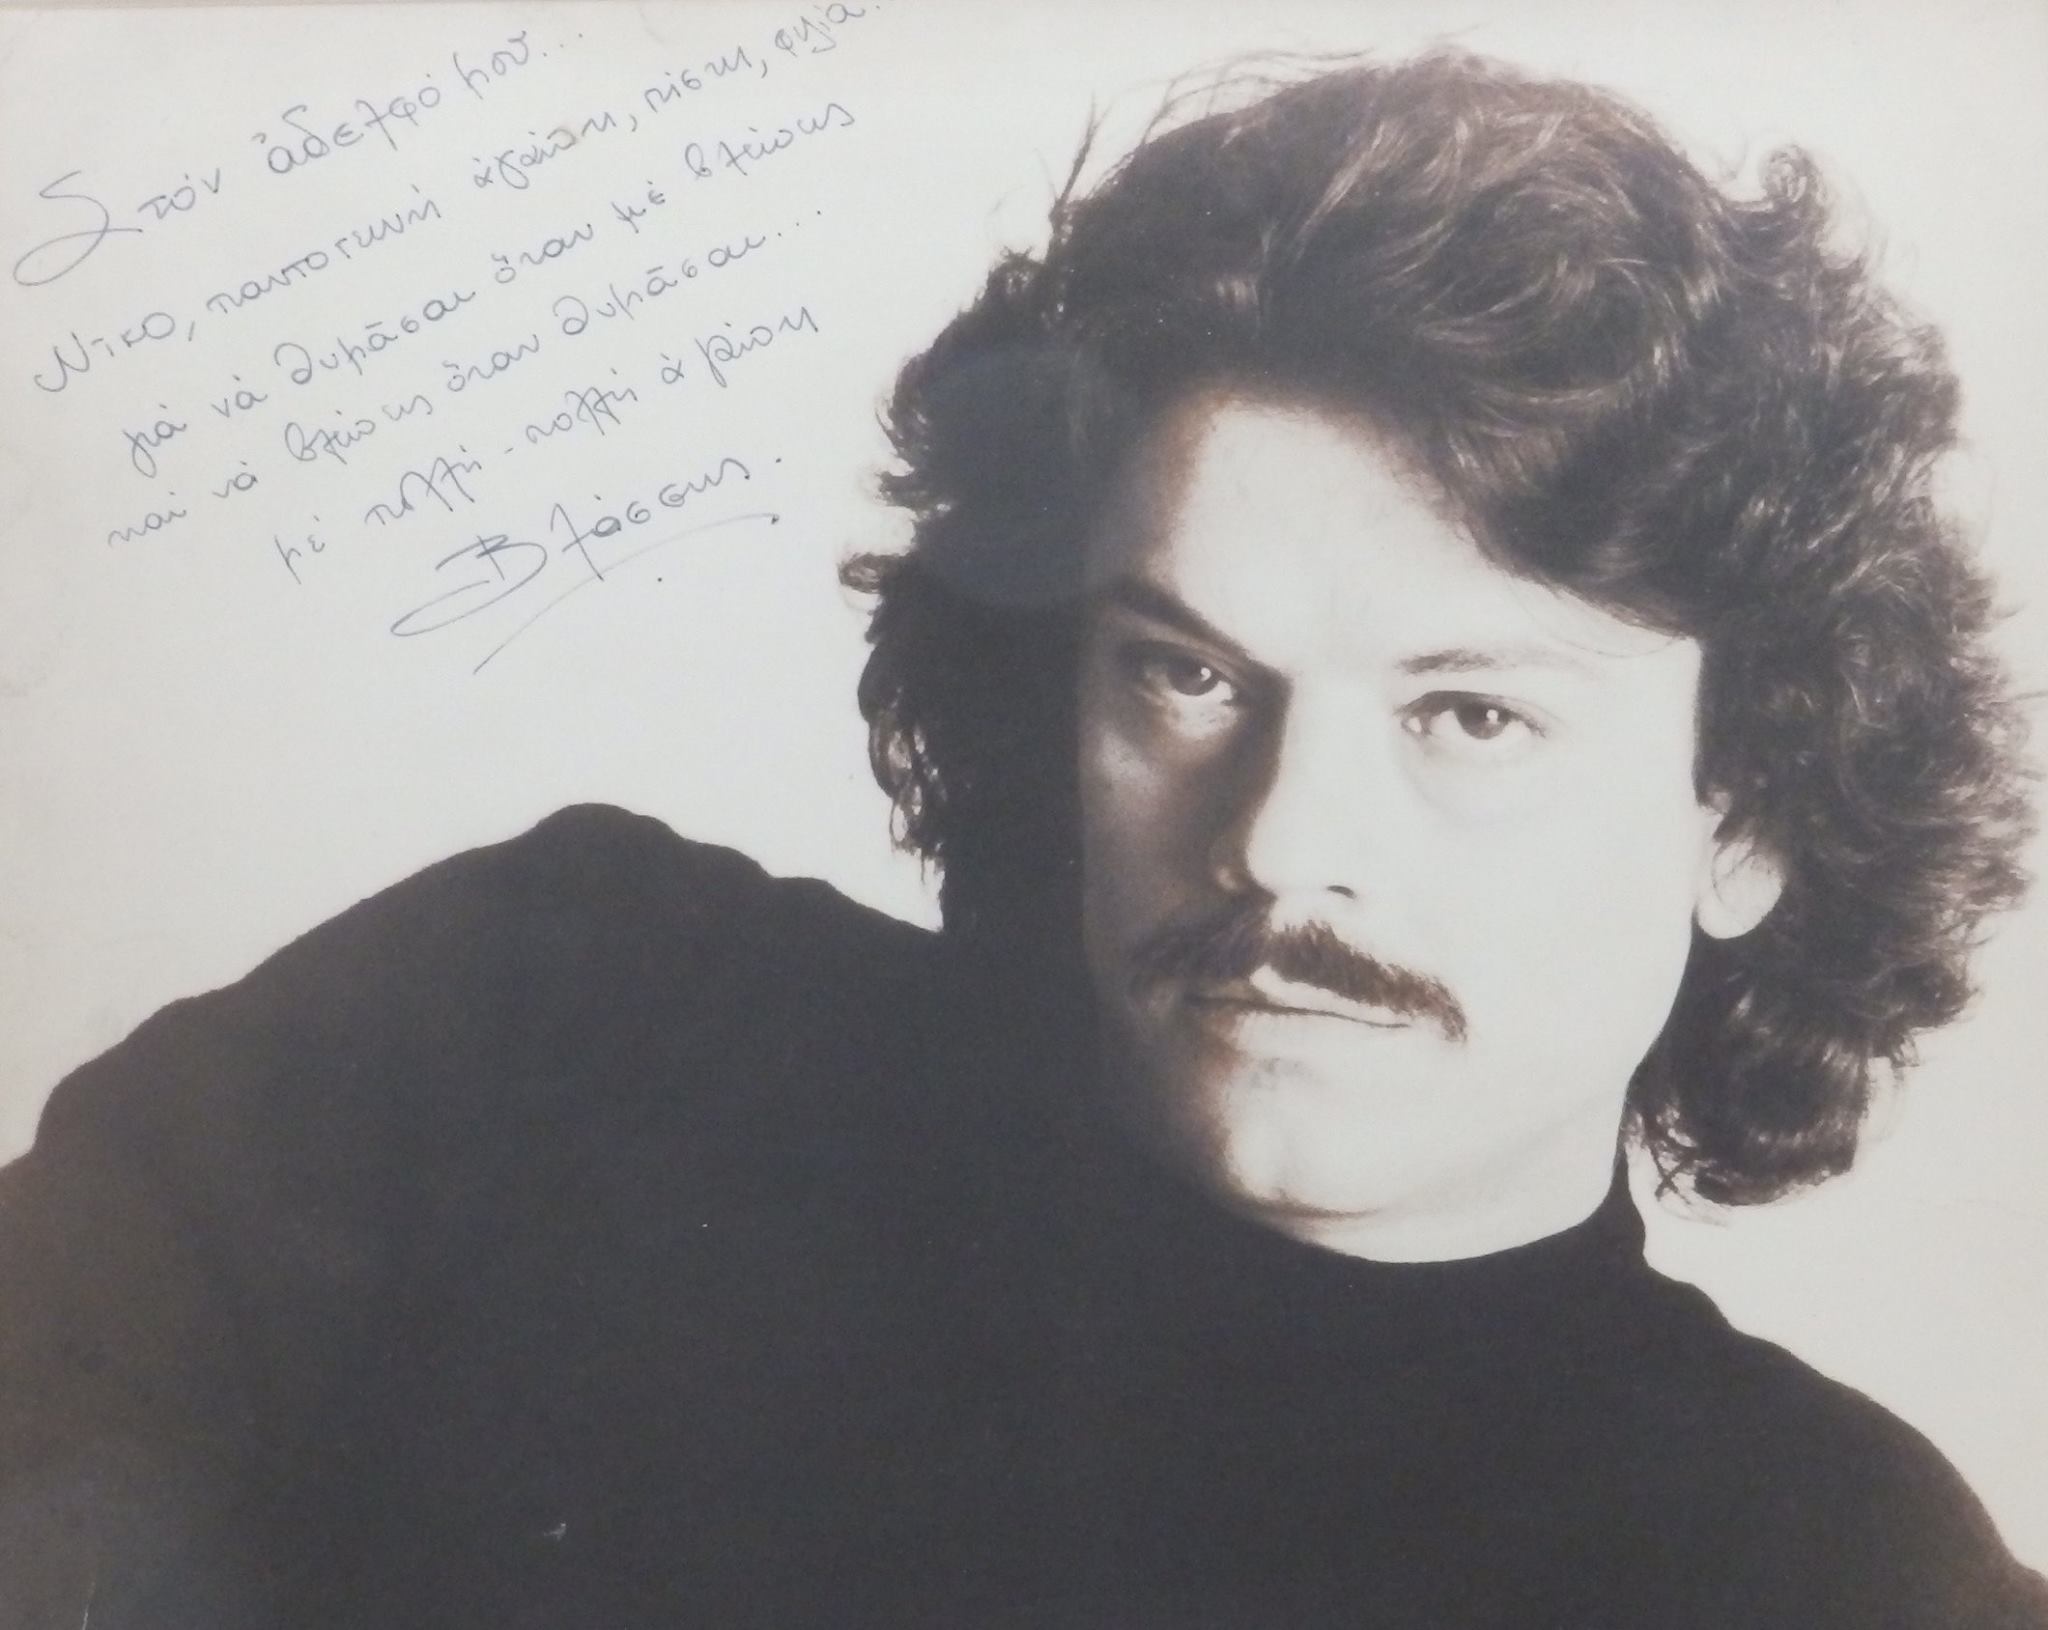 Στόν ἀδελφό μου...
Νίκο, παντοτεινή ἀγάπη, πίστη, φιλία..
γιά νά θυμᾶσαι ὅταν μέ βλέπεις
καί νά βλέπεις ὅταν θυμᾶσαι...
μέ πολλή - πολλή ἀγάπη
Βλάσσης.